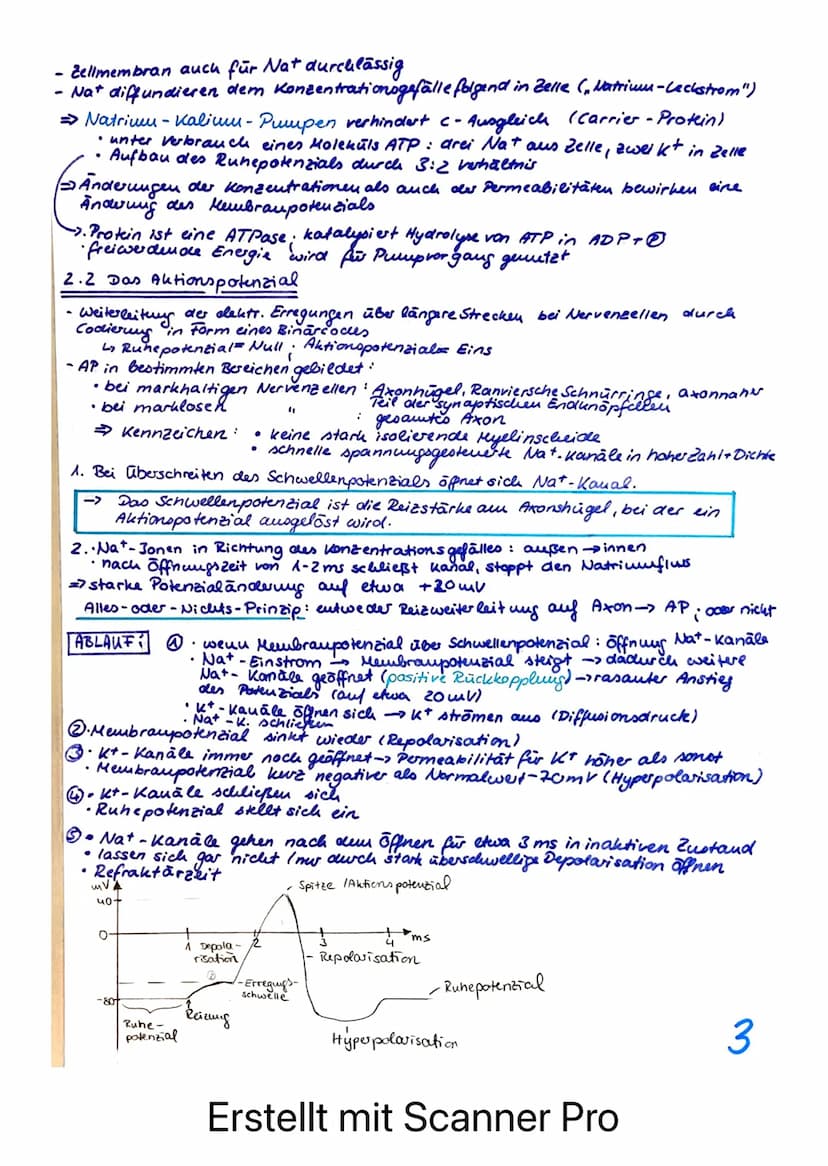 - Zellmembran auch für Na⁺ durchlässig
- Na⁺ diffundieren dem Konzentrationsgefälle folgend in Zelle („Natrium-Leckstrom")
⇒ Natrium-Kalium-Pumpen verhindert c-Ausgleich (Carrier-Protein)
• unter Verbrauch eines Moleküls ATP: drei Na⁺ aus Zelle, zwei K⁺ in Zelle
• Aufbau des Ruhepotenzials durch 3:2 Verhältnis
⇒ Änderungen der Konzentrationen als auch der Permeabilitäten bewirken eine
Änderung des Membranpotenzials
→ • Protein ist eine ATPase; katalysiert Hydrolyse von ATP in ADP+Ⓟ
• freiwerdende Energie wird für Pumpvorgang genutzt
2.2 Das Aktionspotenzial
- Weiterleitung der elektr. Erregungen über längere Strecken bei Nervenzellen durch
Codierung in Form eines Binärcodes
↳ Ruhepotenzial = Null; Aktionspotenzial = Eins
- AP in bestimmten Bereichen gebildet:
• bei markhaltigen Nervenzellen: Axonhügel, Ranviersche Schnürringe, axonnaher
Teil der synaptischen Endknöpfchen
• bei marklosen " : gesamtes Axon
⇒ Kennzeichen: • keine stark isolierende Myelinscheide
• schnelle spannungsgesteuerte Na⁺-Kanäle in hoher Zahl + Dichte
1. Bei Überschreiten des Schwellenpotenzials öffnet sich Na⁺-Kanal.
→ Das Schwellenpotenzial ist die Reizstärke am Axonshügel, bei der ein
Aktionspotenzial ausgelöst wird.
2. • Na⁺-Ionen in Richtung des Konzentrationsgefälles: außen → innen
• nach Öffnungszeit von 1-2 ms schließt Kanal, stoppt den Natriumfluss
⇒ starke Potenzialänderung auf etwa +20mV
Alles-oder-Nichts-Prinzip: entweder Reizweiterleitung auf Axon → AP; oder nicht
ABLAUF: ① • wenn Membranpotenzial über Schwellenpotenzial: Öffnung Na⁺-Kanäle
• Na⁺-Einstrom → Membranpotenzial steigt → dadurch weitere
Na⁺-Kanäle geöffnet (positive Rückkopplung) → rasanter Anstieg
des Potenzials (auf etwa 20mV)
• K⁺-Kanäle öffnen sich → K⁺ strömen aus (Diffusionsdruck)
• Na⁺-K. schließen
② • Membranpotenzial sinkt wieder (Repolarisation)
③ • K⁺-Kanäle immer noch geöffnet → Permeabilität für K⁺ höher als sonst
• Membranpotenzial kurz negativer als Normalwert -70mV (Hyperpolarisation)
④ • K⁺-Kanäle schließen sich
• Ruhepotenzial stellt sich ein
⑤ • Na⁺-Kanäle gehen nach dem Öffnen für etwa 3 ms in inaktiven Zustand
• lassen sich gar nicht / nur durch stark überschwellige Depolarisation öffnen
• Refraktärzeit
mV
Spitze / Aktionspotenzial
40
0
1 2 3 4 ms
Depola-
risation
Repolarisation
Erregungs-
schwelle
Ruhepotenzial
-80
Reizung
Ruhe-
potenzial
Hyperpolarisation
3
Erstellt mit Scanner Pro